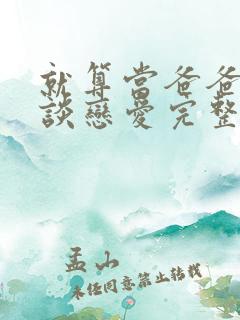 就算當爸爸
談戀愛完整
孟山
未經同意禁止轉載